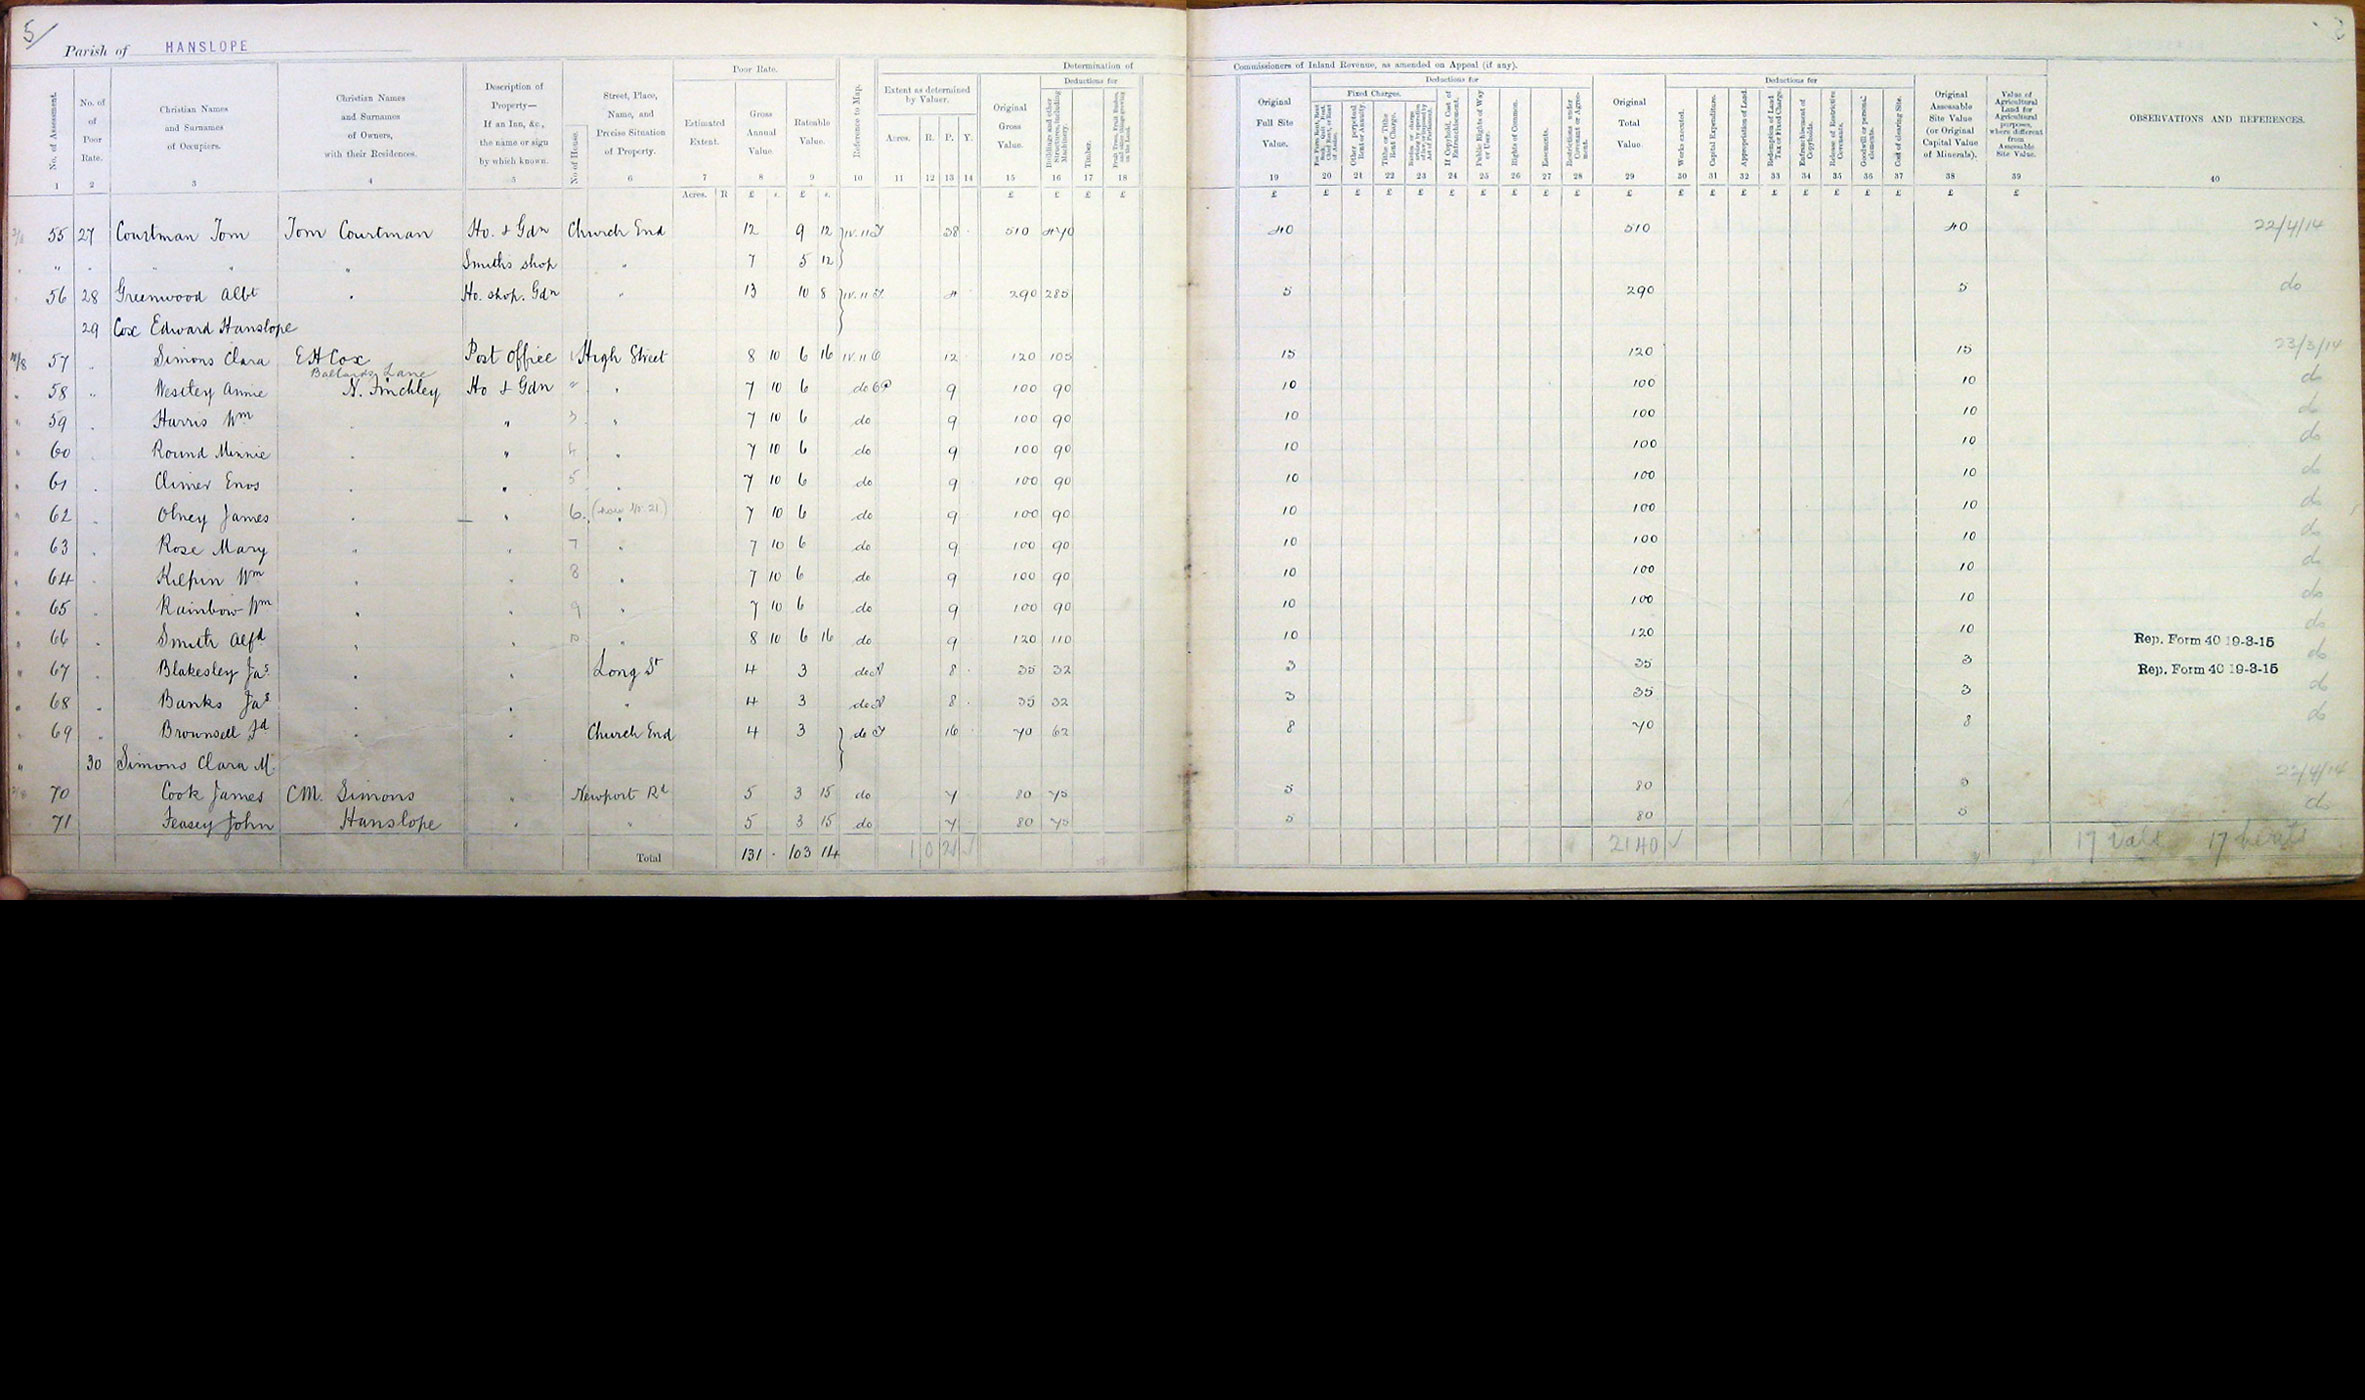 5/
Parish of HANSLOPE
Poor Rate.
Determination of
Commissioners of Inland Revenue, as amended on Appeal (if any).
No. of Assessment. 1
No. of Poor Rate. 2
Christian Names and Surnames of Occupiers. 3
Christian Names and Surnames of Owners, with their Residences. 4
Description of Property— If an Inn, &c., the name or sign by which known. 5
No. of House.
Street, Place, Name, and Precise Situation of Property. 6
Estimated Extent. 7 Acres. R
Gross Annual Value. 8 £ s.
Rateable Value. 9 £ s.
Reference to Map. 10
Extent as determined by Valuer. Acres. 11 R. 12 P. 13 Y. 14
Original Gross Value. 15 £
Deductions for
Buildings and other Structures, including Machinery. 16 £
Timber. 17 £
18 £
Original Full Site Value. 19 £
Deductions for
Fixed Charges.
20 £
Other perpetual Rent or Annuity. 21 £
Tithe or Tithe Rent Charge. 22 £
23 £
If Copyhold, Cost of Enfranchisement. 24 £
Public Rights of Way or User. 25 £
Rights of Common. 26 £
Easements. 27 £
Restrictions under Covenant or Agreement. 28 £
Original Total Value 29 £
Deductions for
Works executed. 30 £
Capital Expenditure. 31 £
Appropriation of Land. 32 £
Redemption of Land Tax or Fixed Charge. 33 £
Enfranchisement of Copyholds. 34 £
Release of Restrictive Covenants. 35 £
Goodwill or personal elements. 36 £
Cost of clearing Site. 37 £
Original Assessable Site Value (or Original Capital Value of Minerals). 38 £
Value of Agricultural Land for Agricultural purposes, where different from Assessable Site Value. 39 £
OBSERVATIONS AND REFERENCES. 40
55 27 Courtman Tom Tom Courtman Ho. & Gdn Church End 12 9 12 IV.11 38 510 470 40 510 40 22/4/14
" " " " Smiths shop " 7 5 12
56 28 Greenwood Albt " Ho. shop. Gdn " 13 10 8 IV.11 4 290 285 5 290 5 do
29 Cox Edward Hanslope
57 " Simons Clara E H Cox Post Office 1 High Street 8 10 6 16 IV.11 12 120 105 15 120 15 23/3/14
Ballards Lane
58 " Westley Annie N. Finchley Ho & Gdn " " 7 10 6 do 9 100 90 10 100 10 do
59 " Harris Wm " " 3 " 7 10 6 do 9 100 90 10 100 10 do
60 " Round Minnie " " 4 " 7 10 6 do 9 100 90 10 100 10 do
61 " Climer Enos " " 5 " 7 10 6 do 9 100 90 10 100 10 do
62 " Olney James " " 6. (now No 21) " 7 10 6 do 9 100 90 10 100 10 do
63 " Rose Mary " " 7 " 7 10 6 do 9 100 90 10 100 10 do
64 " Kilpin Wm " " 8 " 7 10 6 do 9 100 90 10 100 10 do
65 " Rainbow Wm " " 9 " 7 10 6 do 9 100 90 10 100 10 do
66 " Smith Alfd " " 10 " 8 10 6 16 do 9 120 110 10 120 10 Rep. Form 40 19-3-15 do
67 " Blakesley Jas " " Long St 4 3 do 8 35 32 3 35 3 Rep. Form 40 19-3-15 do
68 " Banks Jas " " " 4 3 do 8 35 32 3 35 3 do
69 " Brownsell Jd " " Church End 4 3 do 16 70 62 8 70 8 do
30 Simons Clara M.
70 Cook James C M. Simons " Newport Rd 5 3 15 do 7 80 75 5 80 5 22/4/14
71 Feasey John Hanslope " " 5 3 15 do 7 80 75 5 80 5 do
Total 131 - 103 14 1 0 21 ✓ 2140 ✓ 17 vals 17